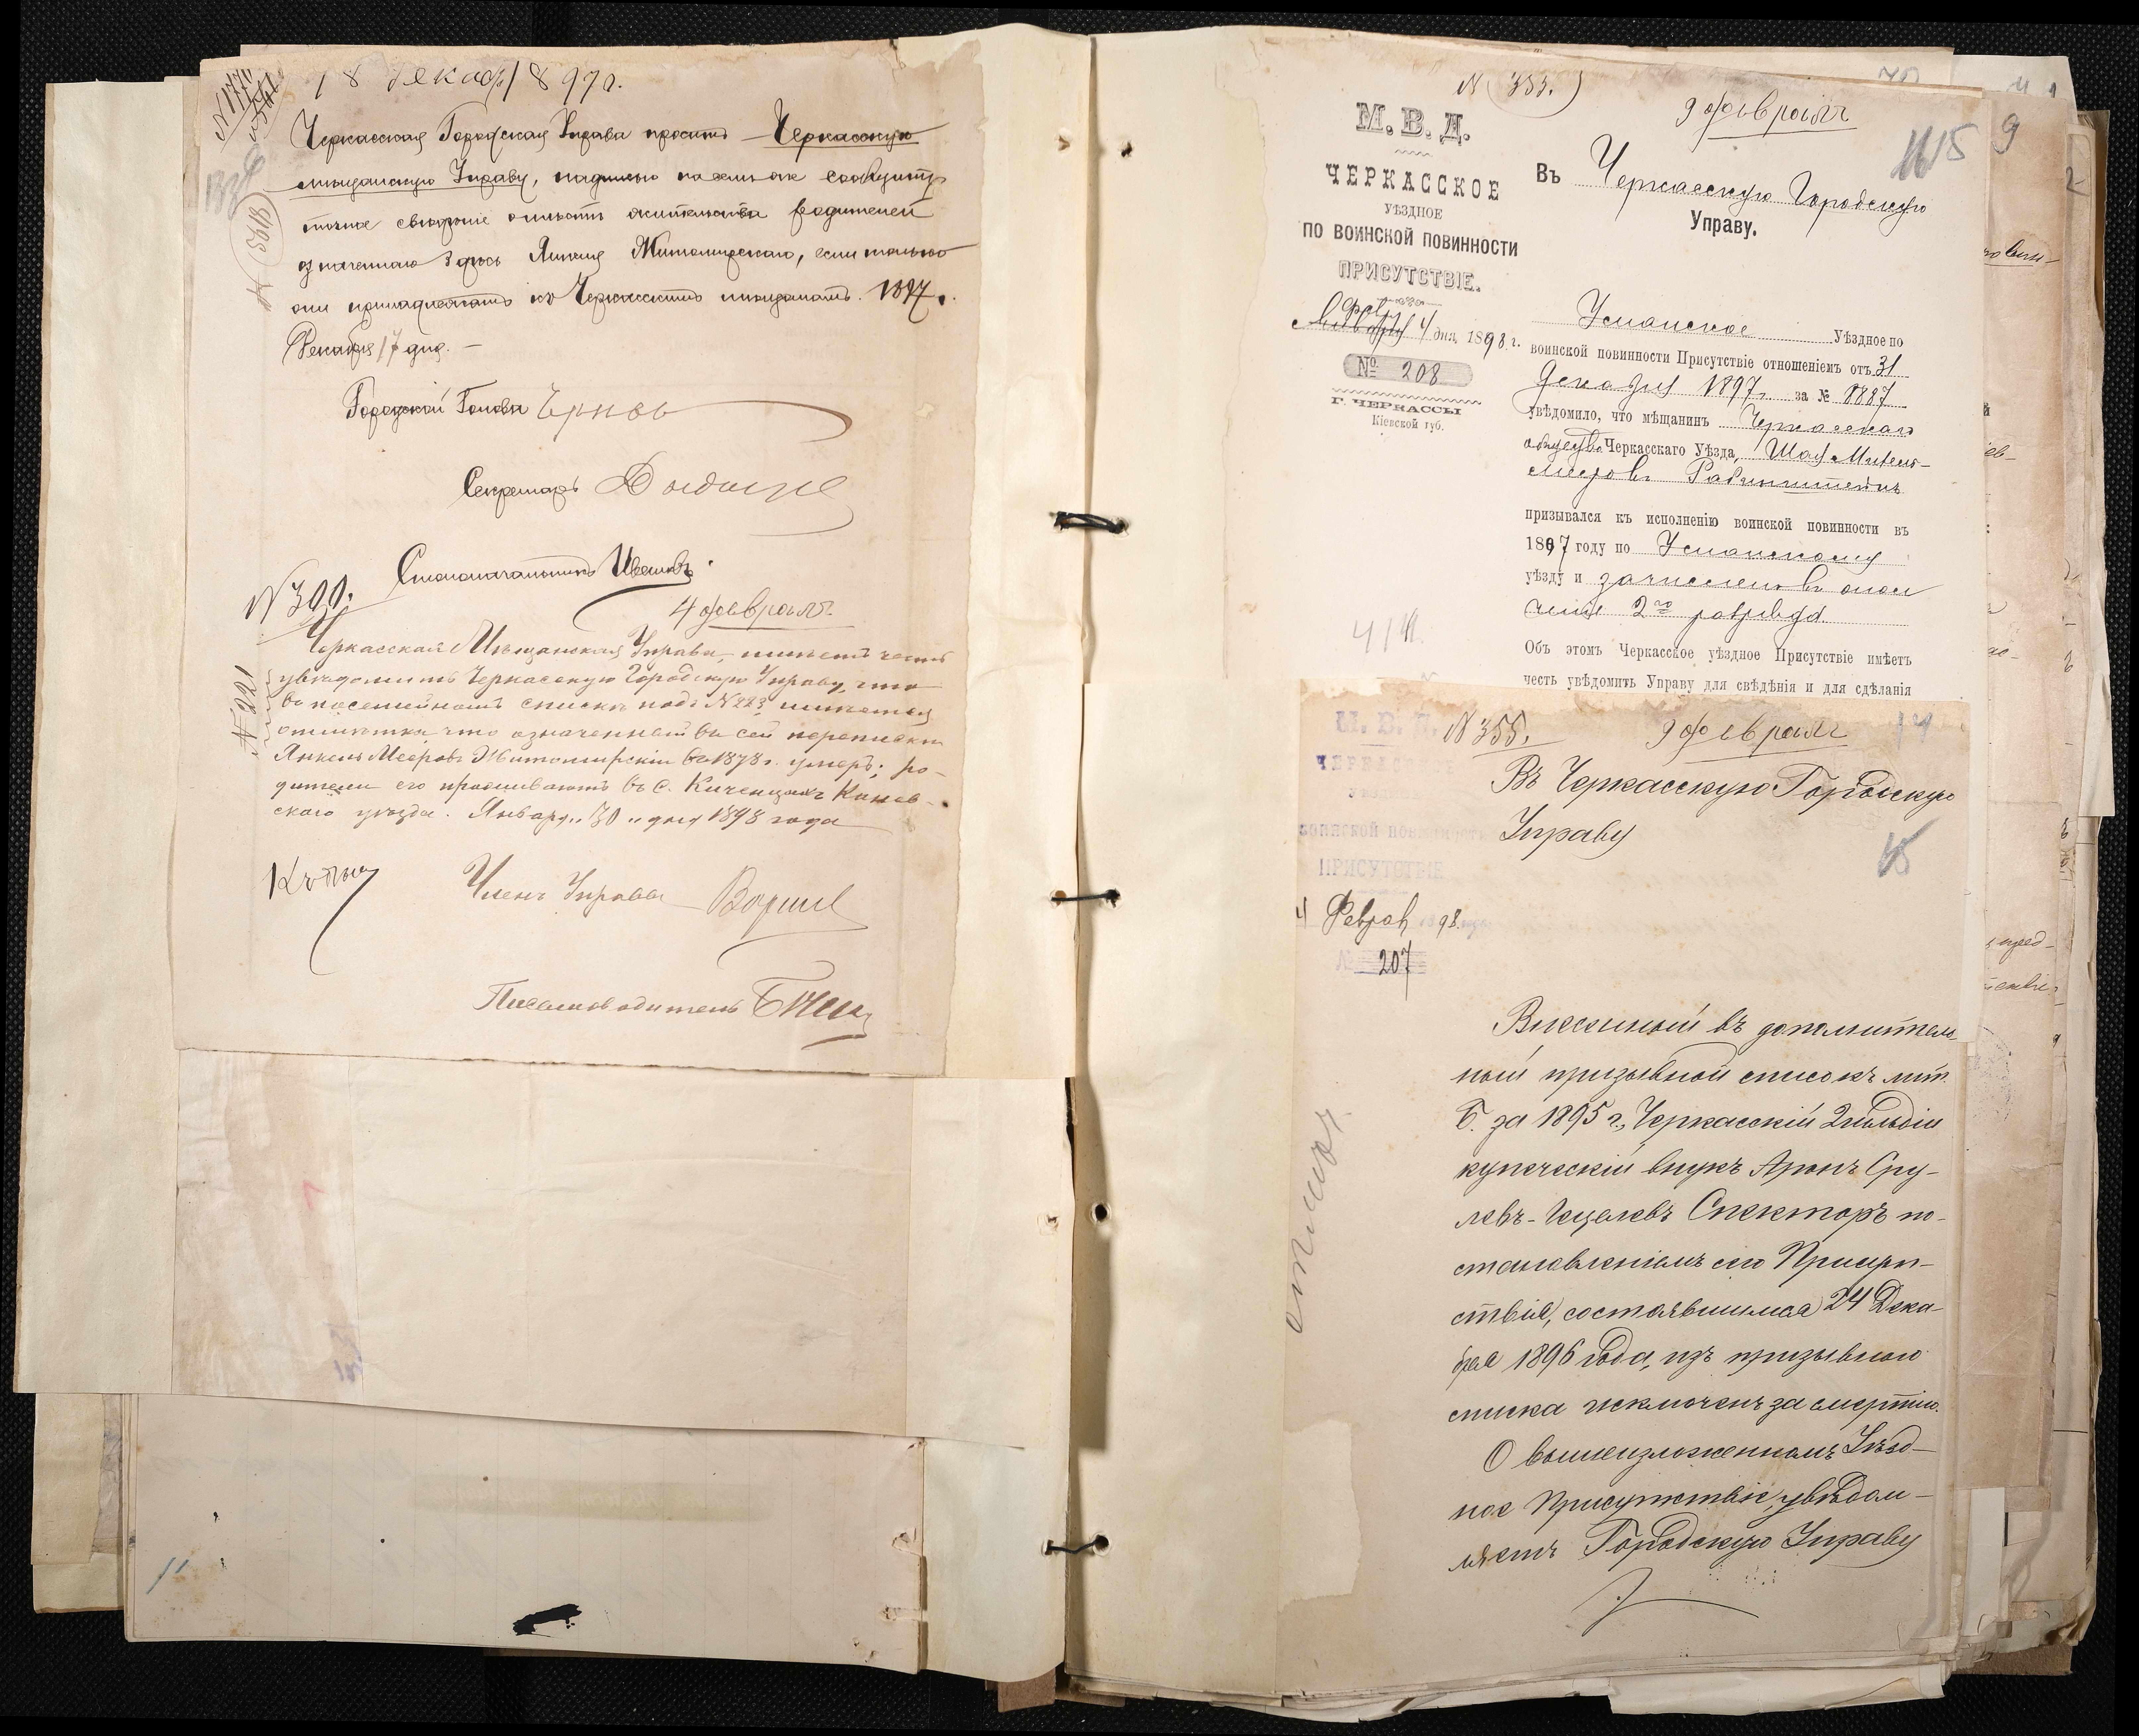 18 декабр 1897 г.
Черкасская Городская Управа проситъ Черкасскую
мѣщанскую Управу, надписью на семъ же сообщить
точное свѣдѣніе о мѣстѣ жительства родителей
означеннаго здѣсь Янкеля Житомирскаго, если только
они принадлежатъ къ Черкасскимъ мѣщанамъ. 1897 г.
Декабря 17 дня.
№ 5918
Городской Голова
Секретарь
Столоначальникъ Ивановъ
№ 300.
4 февраля
Черкасская Мѣщанская Управа, имѣетъ честь
увѣдомить Черкасскую Городскую Управу, что
въ посемейномъ списке подъ № 223, имѣется
отмѣтка что означенный въ сей переписки
Янкель Мееровъ Житомирскій въ 1878 г. умеръ; ро-
дители его проживаютъ въ с. Каченцахъ Канев-
скаго уѣзда. Января „30„ дня 1898 года
№ 221
Къ дѣлу
Членъ Управы
Письмоводитель
11
№ 353.
9 февраля
15
М. В. Д.
ЧЕРКАССКОЕ
УѢЗДНОЕ
ПО ВОИНСКОЙ ПОВИННОСТИ
ПРИСУТСТВІЕ.
Фев
Января 4 дня, 1898 г.
№ 208
Г. ЧЕРКАССЫ
Кіевской губ.
Въ Черкасскую Городскую
Управу.
Уманское Уѣздное по
воинской повинности Присутствіе отношеніемъ отъ 31
Декабря 1897 г. за № 8887
увѣдомило, что мѣщанинъ Черкасскаго
общества Черкасскаго Уѣзда, Шая Михель-
Мееровъ Рабинштейнъ
призывался къ исполненію воинской повинности въ
1897 году по Уманскому
уѣзду и зачисленъ въ опол
ченіе 2го разряда
Объ этомъ Черкасское уѣздное Присутствіе имѣетъ
честь увѣдомить Управу для свѣдѣнія и для сдѣланія
М. В. Д.
ПРИСУТСТВІЕ
4 Феврал 1898 года
№ 207
№ 355.
9 февраля
Въ Черкасскую Городскую
Управу
15
Внесенный въ дополнитель-
ный призывной списокъ лит.
Б. за 1895 г., Черкасскій 2 гильдіи
купеческій внукъ Аронъ Сру-
левъ-Гецелевъ Спекторъ по-
становленіемъ сего Присут-
ствія, состоявшимся 24 Дека-
бря 1896 года, изъ призывного
списка исключенъ за смертію.
О вышеизложенномъ Уѣзд-
ное Присутствіе, увѣдом-
ляетъ Городскую Управу